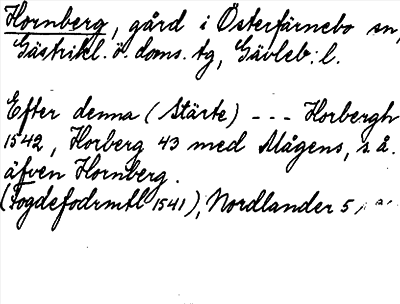 Hornberg, gård i Österfärnebo sn,
Gästrikl. ö. doms. tg, Gävleb. l.
Efter denna (Stärte) --- Horbergh
1542, Horberg 43 med Mågens, s. å.
äfven Hornberg.
(Fogdefodrmtl 1541), Nordlander 5,